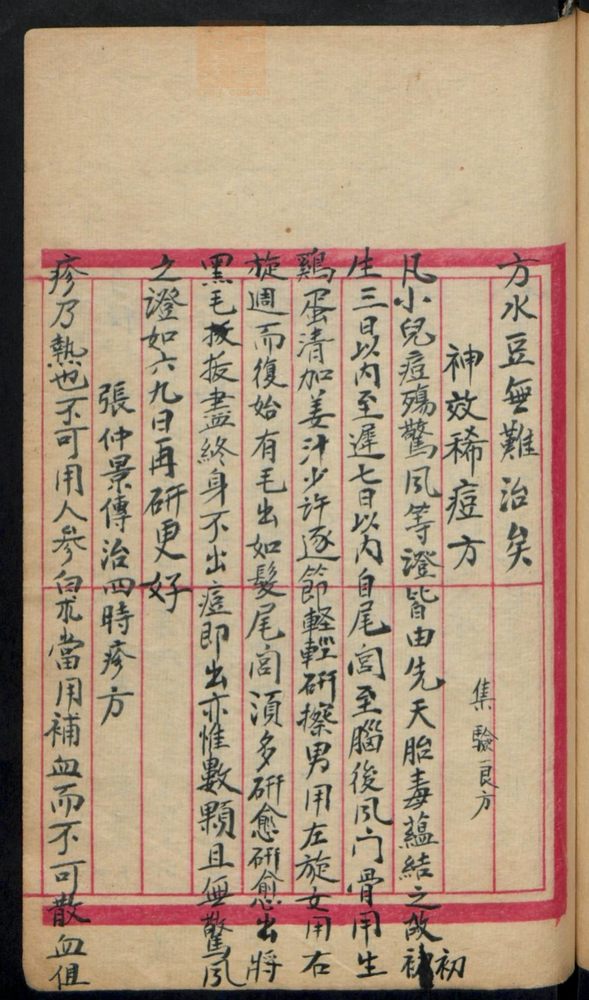 方水豆無難治矣
神效稀痘方
集驗良方
凡小兒痘殤驚风等證皆由先天胎毒蘊結之故初
生三日以內至遲七日以內自尾宮至腦後风门骨用生
鷄蛋清加姜汁少许逐節輕輕研擦男用左旋女用右
旋週而復始有毛出如髮尾宮須多研愈研愈出將
黑毛拔拔盡終身不出痘即出亦惟數顆且無驚风
之證如六九日再研更好
張仲景傳治四時疹方
疹乃熱也不可用人參白朮當用補血而不可散血但